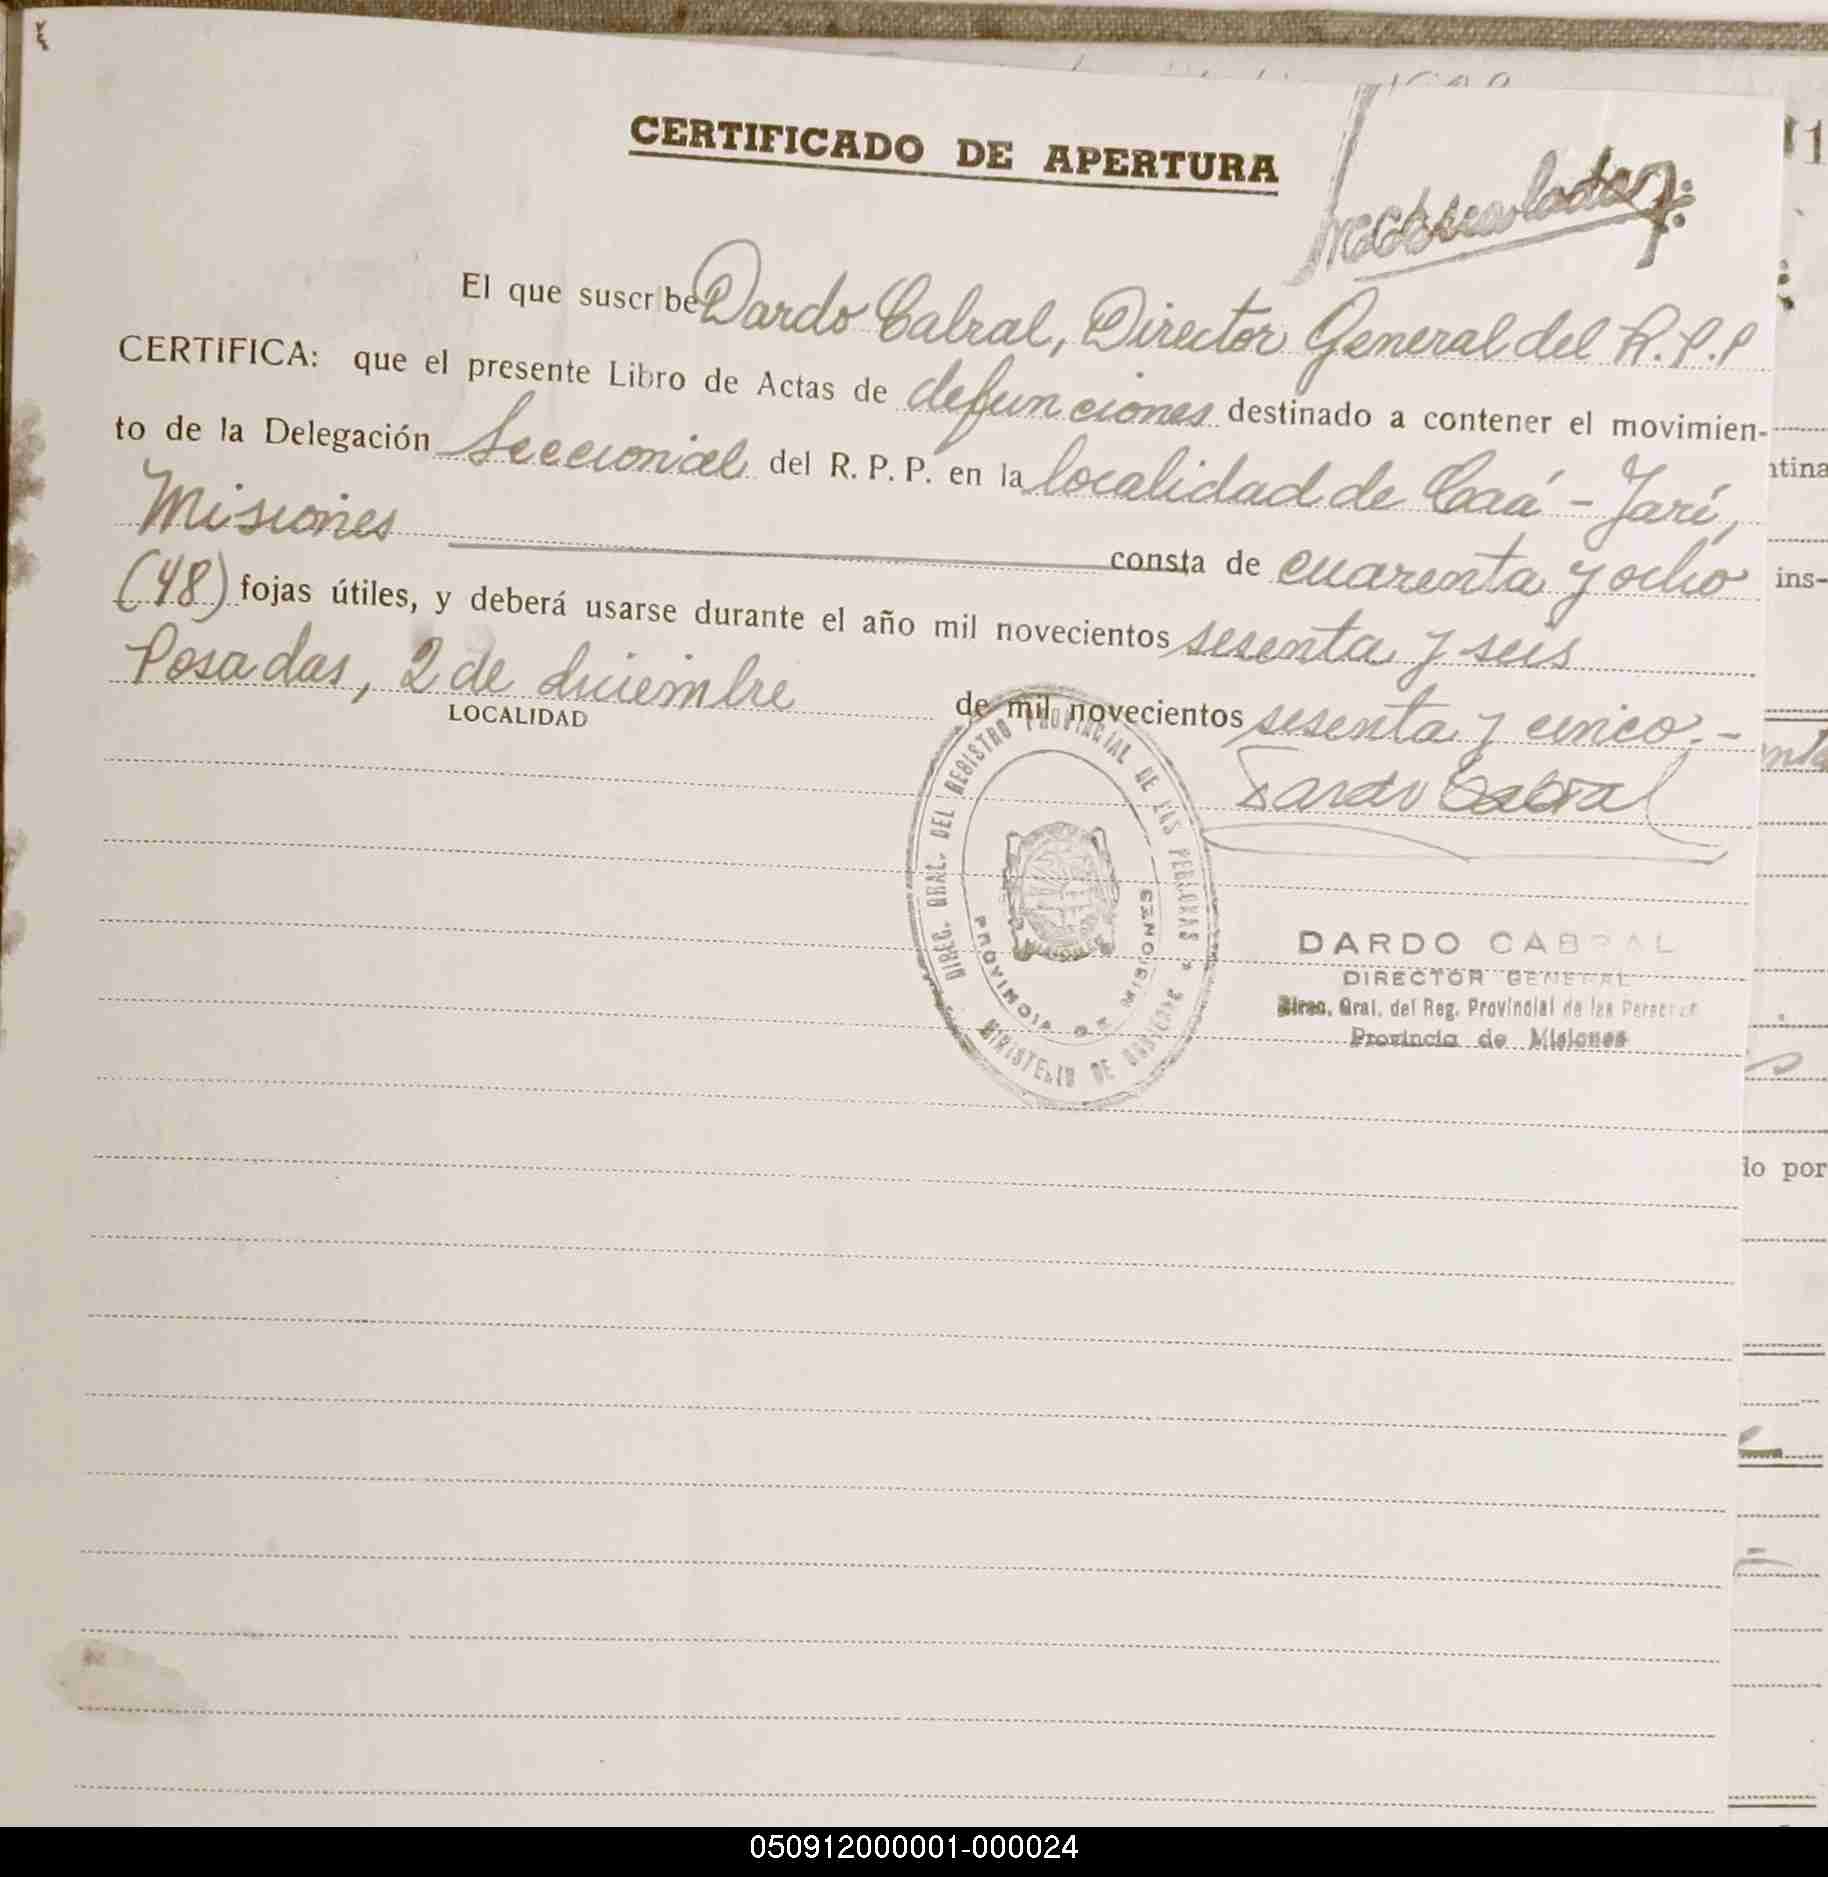 CERTIFICADO DE APERTURA
El que suscribe Dardo Cabral, Director General del R.P.P
CERTIFICA: que el presente Libro de Actas de defunciones destinado a contener el movimien-
to de la Delegación Seccional del R. P. P. en la localidad de Caá - Yarí,
Misiones consta de cuarenta y ocho
(48) fojas útiles, y deberá usarse durante el año mil novecientos sesenta y seis
Posadas, 2 de diciembre de mil novecientos sesenta y cinco.-
LOCALIDAD
Dardo Cabral
DIREC. GRAL. DEL REGISTRO PROVINCIAL DE LAS PERSONAS
PROVINCIA DE MISIONES
MINISTERIO DE GOBIERNO
DARDO CABRAL
DIRECTOR GENERAL
Direc. Gral. del Reg. Provincial de las Personas
Provincia de Misiones
1
ntina
ins-
lo por
050912000001-000024